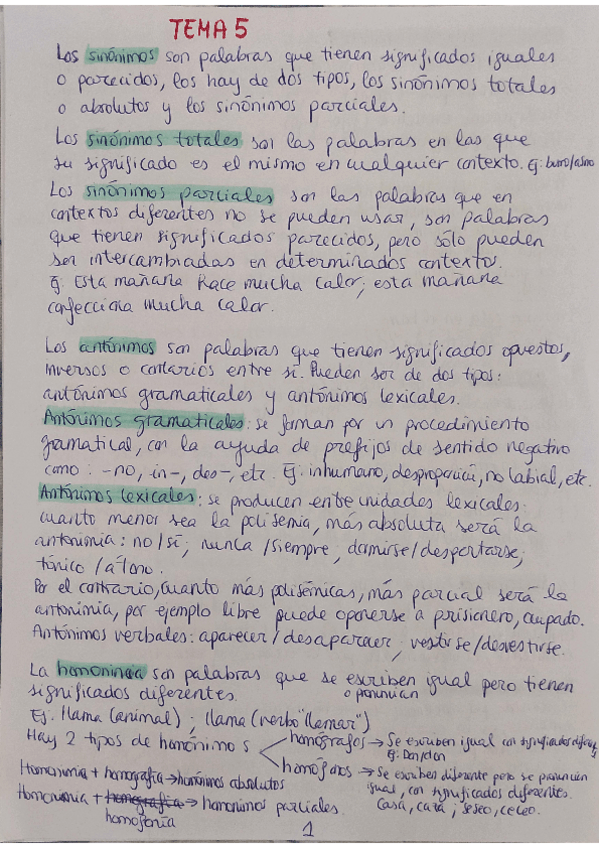 TEMA 5
Los sinónimos son palabras que tienen significados iguales
o parecidos, los hay de dos tipos, los sinónimos totales
o absolutos y los sinónimos parciales.
Los sinónimos totales son las palabras en las que
su significado es el mismo en cualquier contexto. Ej: burro/asno
Los sinónimos parciales son las palabras que en
contextos diferentes no se pueden usar, son palabras
que tienen significados parecidos, pero sólo pueden
ser intercambiadas en determinados contextos.
Ej: Esta mañana hace mucha calor; esta mañana
confecciona mucha calor.
Los antónimos son palabras que tienen significados opuestos,
inversos o contrarios entre sí. Pueden ser de dos tipos:
antónimos gramaticales y antónimos lexicales.
Antónimos gramaticales: se forman por un procedimiento
gramatical, con la ayuda de prefijos de sentido negativo
como: -no, in-, des-, etc. Ej: inhumano, desproporción, no labial, etc.
Antónimos lexicales: se producen entre unidades lexicales.
cuanto menor sea la polisemia, más absoluta será la
antonimia: no/sí; nunca/siempre, dormirse/despertarse;
tónico/átono.
Por el contrario, cuanto más polisémicas, más parcial será la
antonimia, por ejemplo libre puede oponerse a prisionero, ocupado.
Antónimos verbales: aparecer/desaparecer, vestirse/desvestirse.
La homonimia son palabras que se escriben igual pero tienen
o pronuncian
significados diferentes.
Ej: llama (animal); llama (verbo "llamar")
Hay 2 tipos de homónimos
homógrafos → Se escriben igual con significados diferentes
Ej: Don/don
homófonos → Se escriben diferente pero se pronuncian
igual, con significados diferentes.
Casa, caza, seseo, ceceo.
Homonimia + homografía → homónimos absolutos
Homonimia + homografía → homonimos parciales.
homofonía
1